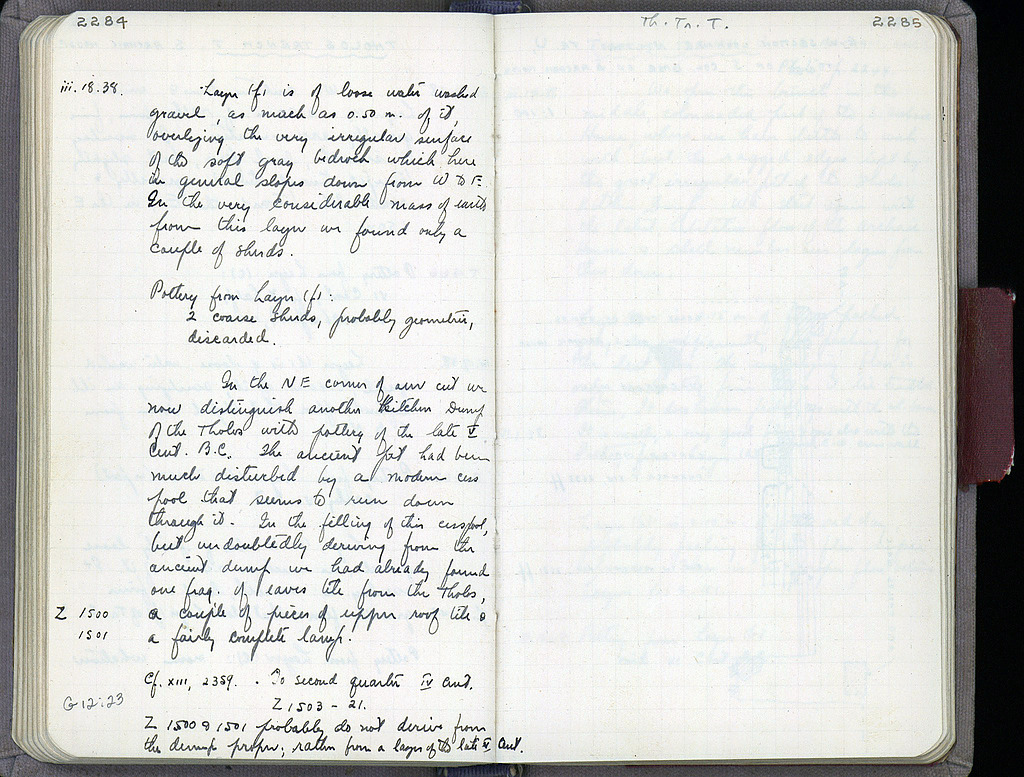 2284
Th. Tr. T.
2285
iii.18.38. Layer (f) is of loose water washed
gravel, as much as 0.50 m. of it,
overlying the very irregular surface
of the soft gray bedrock which here
in general slopes down from W to E.
In the very considerable mass of earth
from this layer we found only a
couple of sherds.
Pottery from Layer (f):
2 coarse sherds, probably geometric,
discarded.
In the NE corner of our cut we
now distinguish another Kitchen Dump
of the Tholos with pottery of the late V
Cent. B.C. The ancient pit had been
much disturbed by a modern cess
pool that seems to run down
through it. In the filling of this cesspool,
but undoubtedly deriving from the
ancient dump we had already found
one frag. of eaves tile from the Tholos,
Z 1500 a couple of pieces of upper roof tile &
1501 a fairly complete lamp.
Cf. XIII, 2359. . To second quarter IV cent.
Z 1503 - 21.
G 12:23
Z 1500 & 1501 probably do not derive from
the dump proper; rather from a layer of the late V Cent.